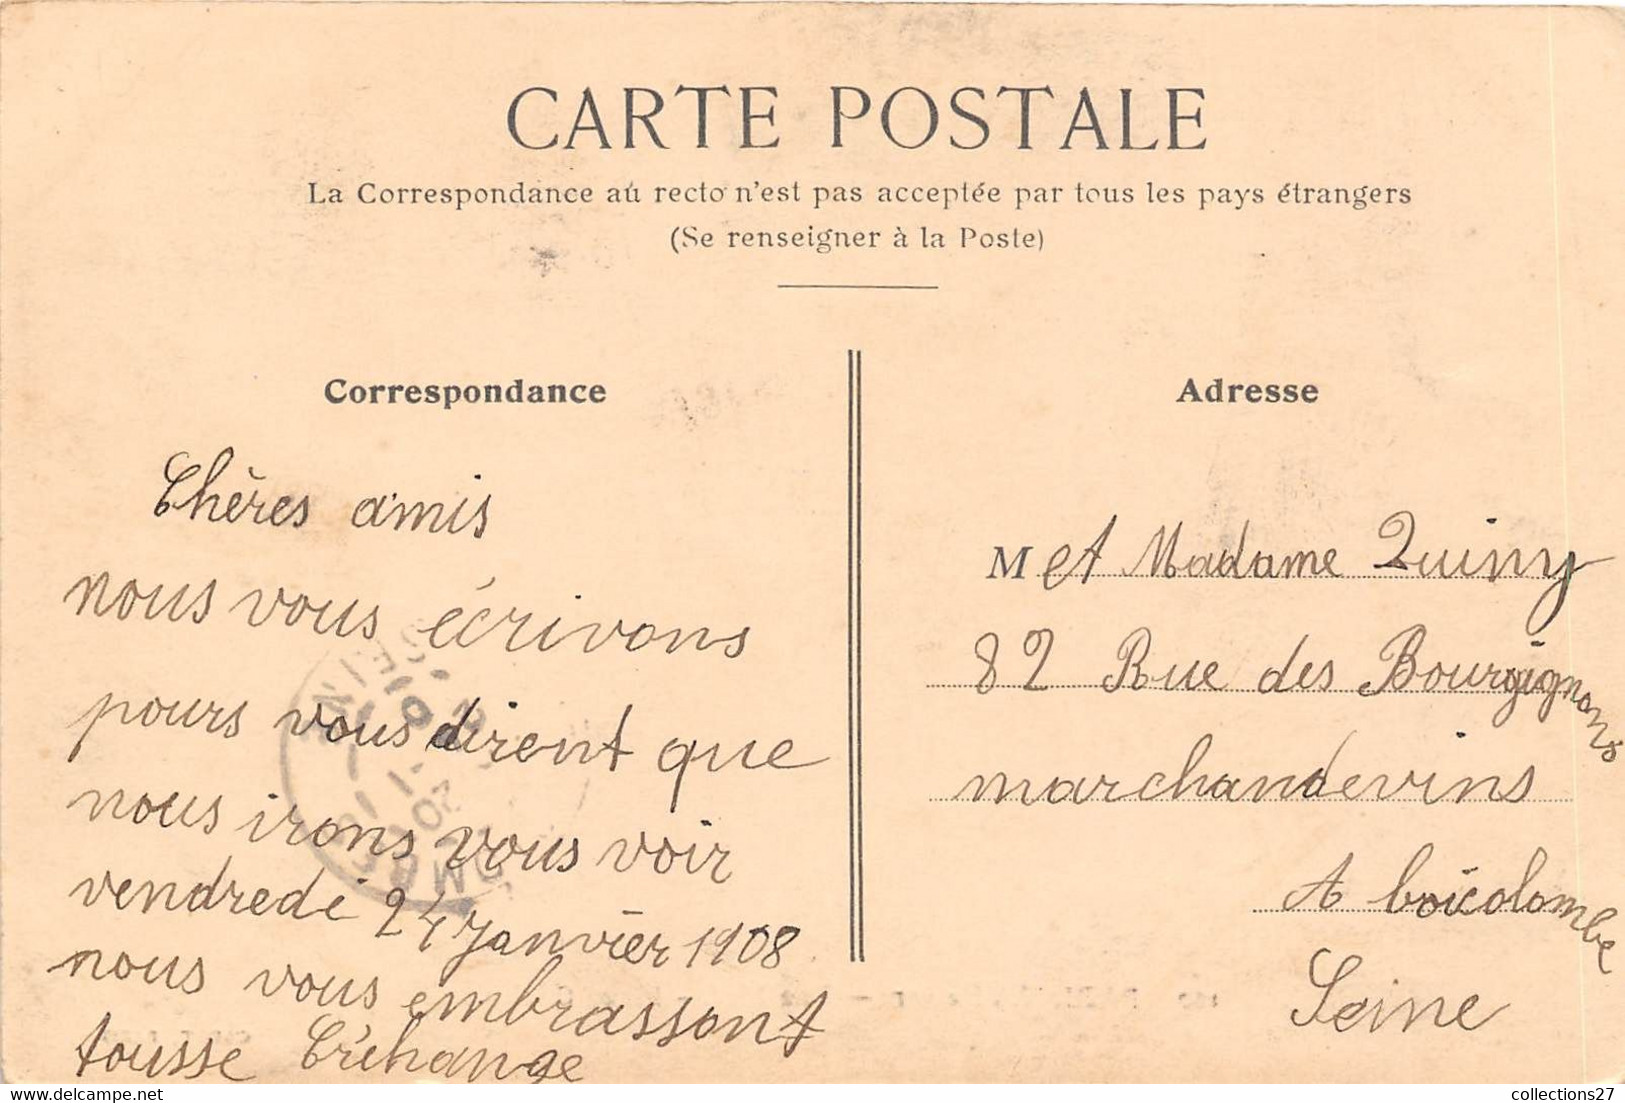 CARTE POSTALE
La Correspondance au recto n'est pas acceptée par tous les pays étrangers
(Se renseigner à la Poste)
Correspondance
Chères amis
nous vous écrivons
pours vous dirent que
nous irons vous voir
vendredi 24 Janvier 1908
nous vous embrassont
tousse
Adresse
M et Madame Quiny
82 Rue des Bourgignons
marchandevins
A boicolombe
Seine
collections27